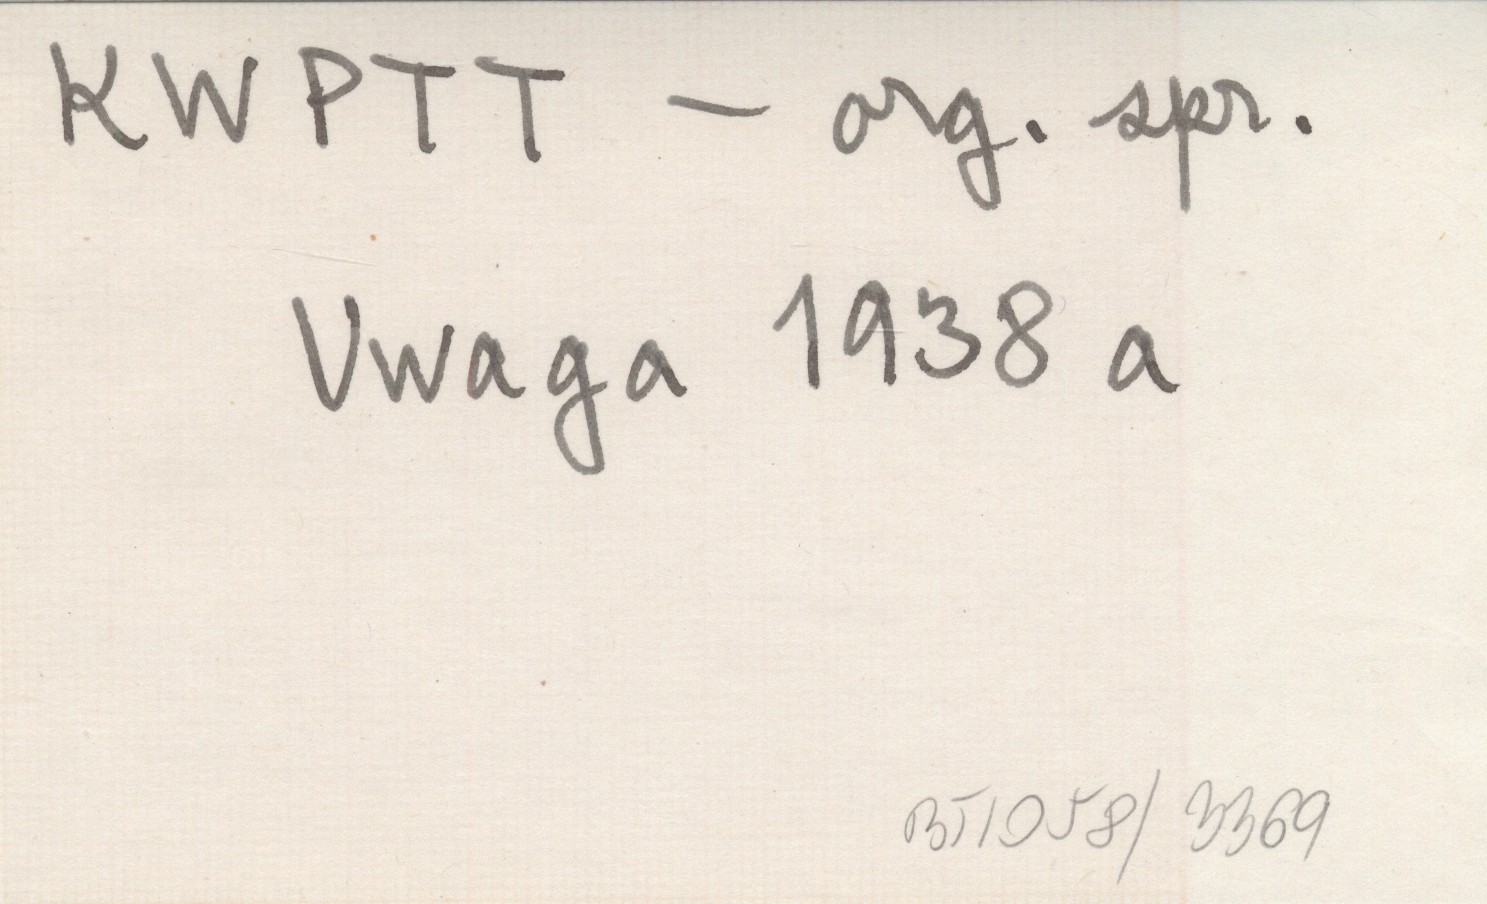 KWPTT - org. spr.
Uwaga 1938 a
BT1058/3369